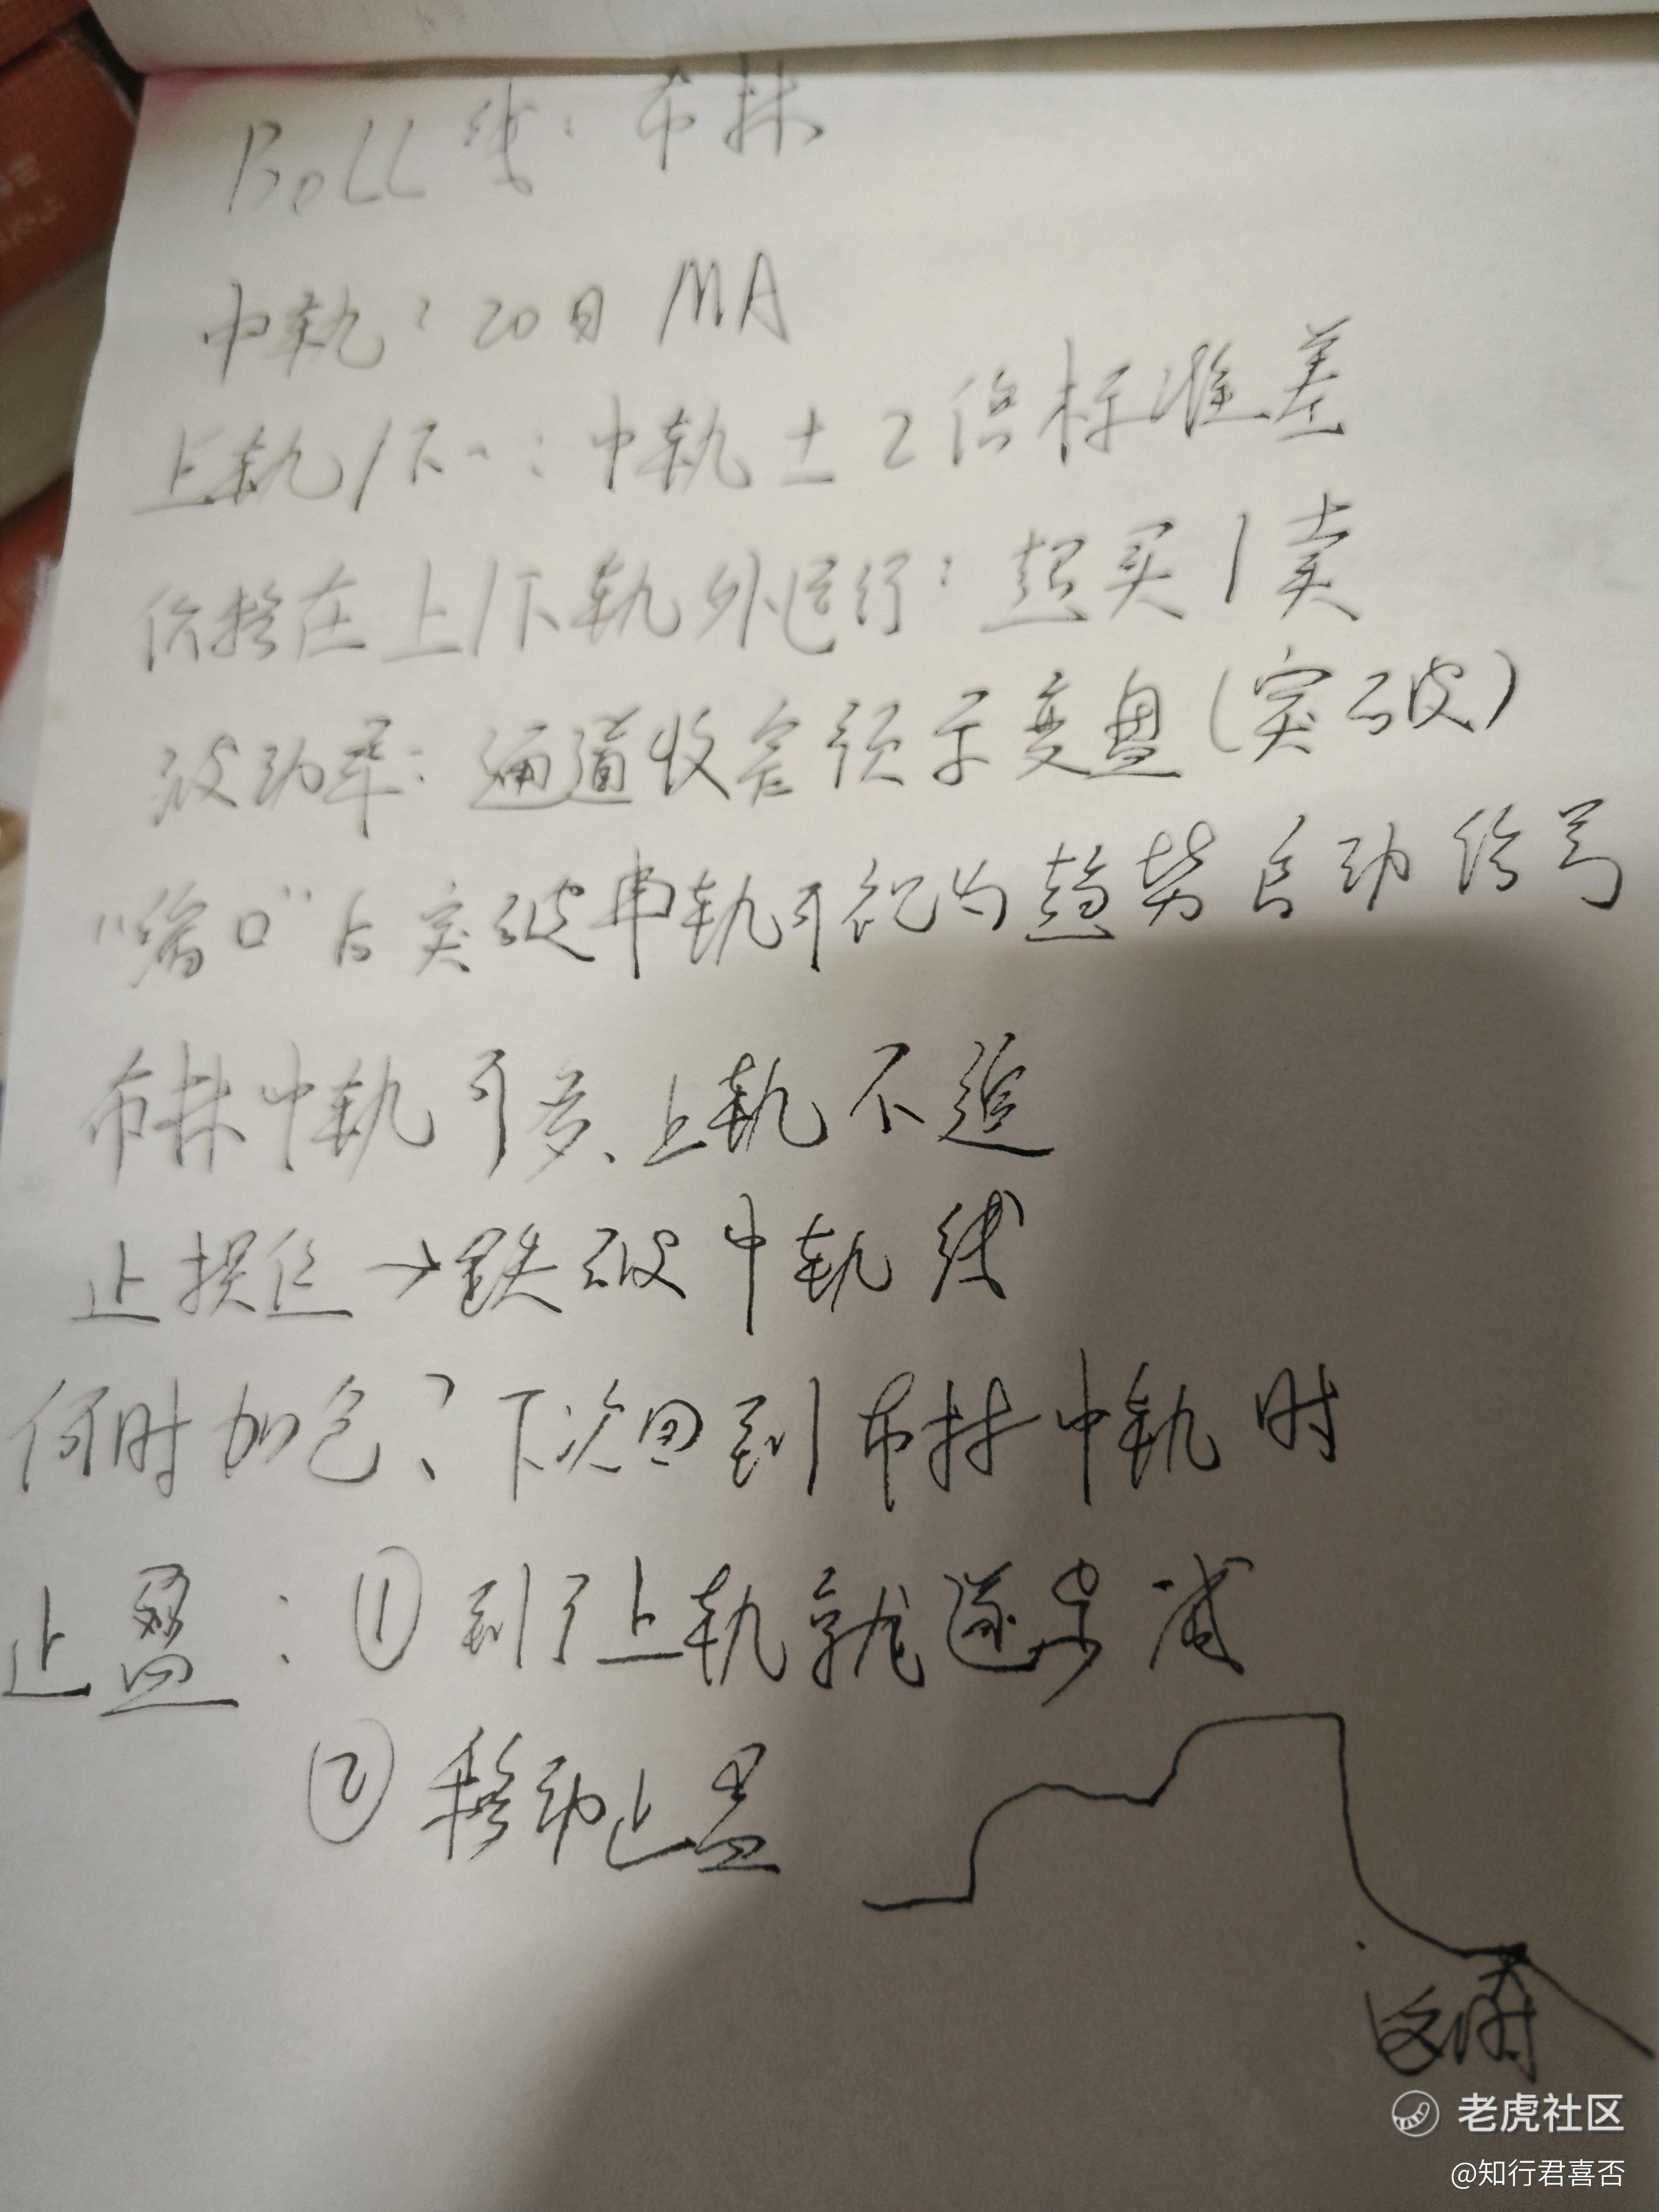 BOLL线：布林
中轨：20日 MA
上轨/下~：中轨±2倍标准差
价格在上/下轨外运行：超买/卖
波动率：通道收窄预示变盘(突破)
"缩口"后突破中轨可视为趋势启动信号
布林中轨可多、上轨不追
止损位→跌破中轨线
何时加仓？下次回到布林中轨时
止盈：①到了上轨就逐步减
②移动止盈
老虎社区
@知行君喜否